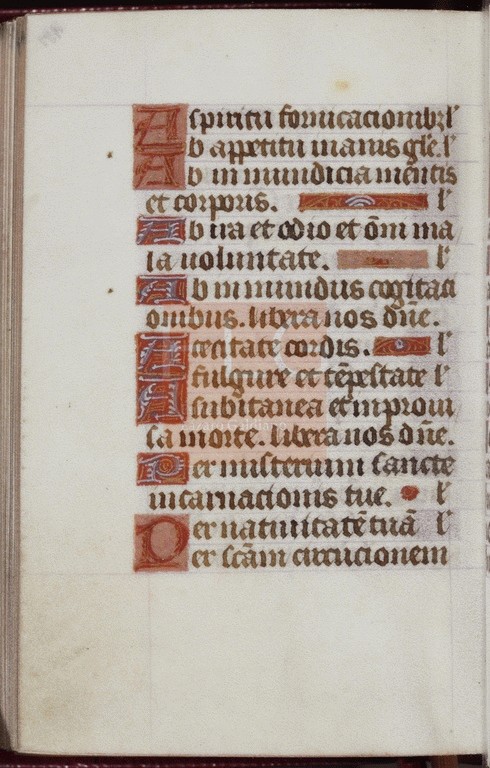 A spiritu fornicacionibz l'
Ab appetitu inanis gle. l'
Ab inmundicia mentis
et corporis. l'
Ab ira et odio et om̄ ma
la uoluntate. l'
Ab inmundus cogitaci
onibus. libera nos dn̄e.
A cecitate cordis. l'
A fulgure et tēpestate l'
A subitanea et inproui
sa morte. libera nos dn̄e.
Per misterium sancte
incarnacionis tue. l'
Per natiuitatē tuā l'
Per scām circucionem